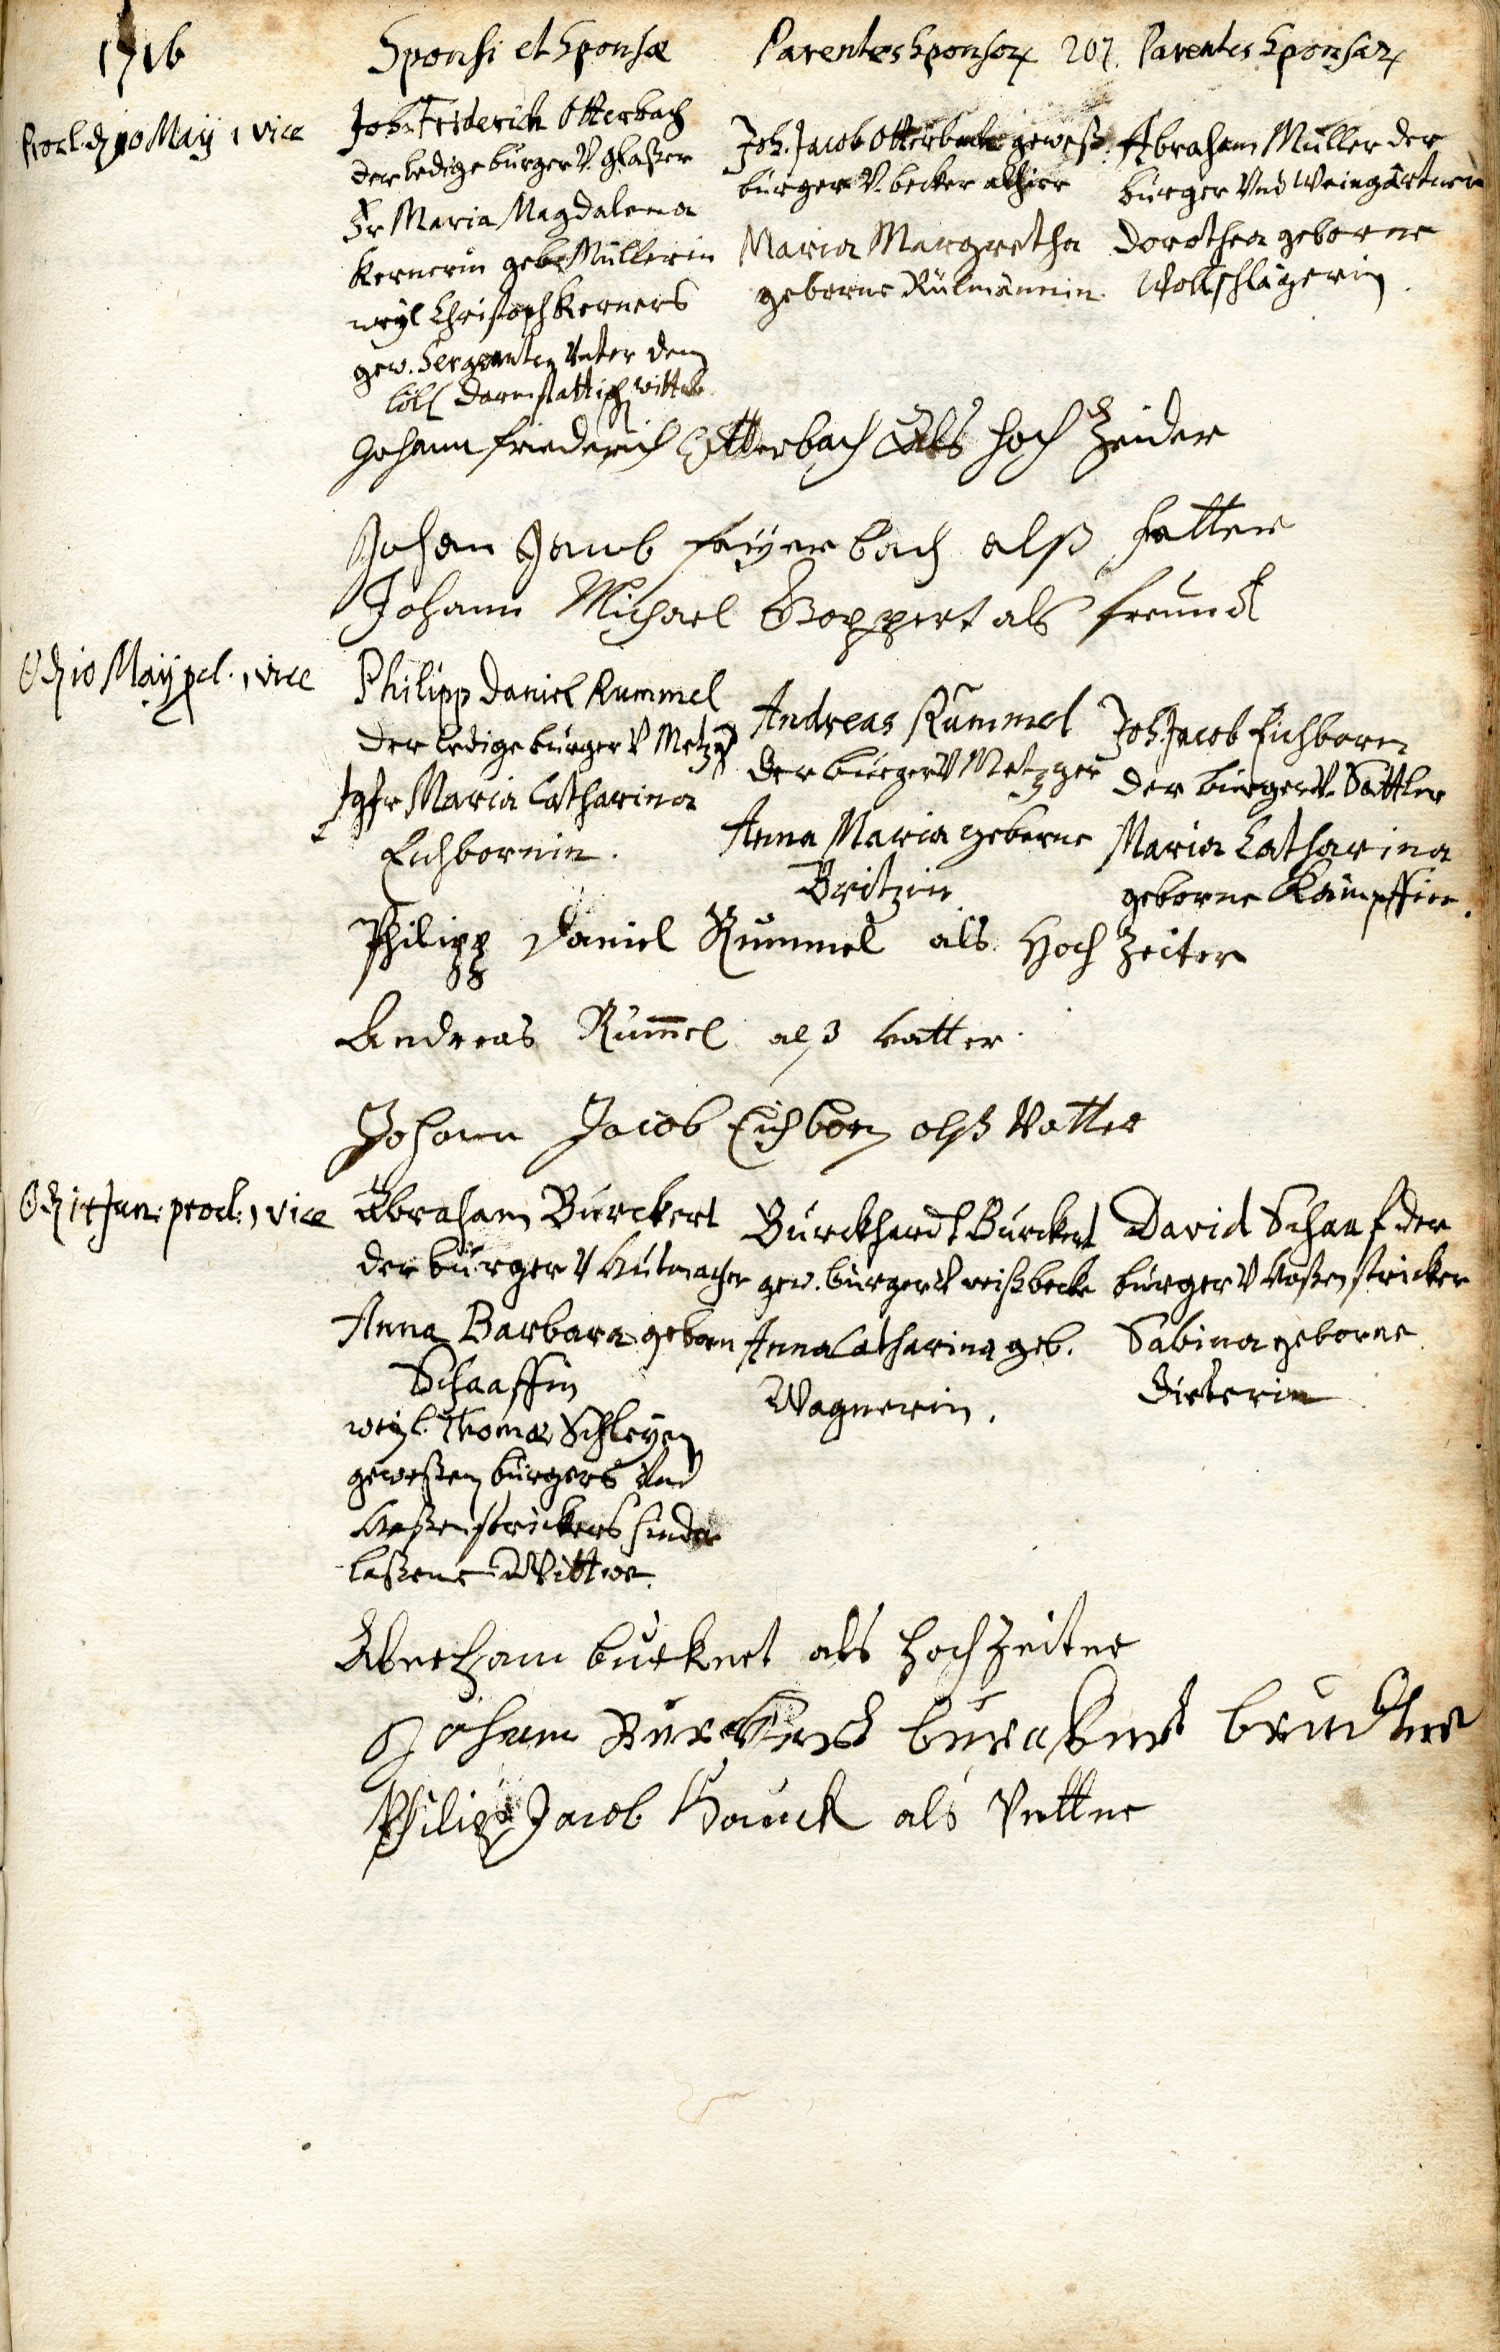 1716
Sponsi et Sponsæ
Parentes Sponsor. 207. Parentes Sponsar.
Procl. d. 10 Maÿ 1 vice
Joh. Friderich Otterbach
der ledige burger V. glaßer
Fr Maria Magdalena
Kernerin geb. Müllerin
weÿl Christoph Kerners
gew. Sergeanten Unter dem
löbl Darmstattisch wittib
Joh. Jacob Otterbach geweß.
burger V. becker alhier
Maria Margretha
geborne Rülmännin
Abraham Müller der
burger Und Weingärtner
Dorothea geborne
Wollschlägerin
Johann friederich Otterbach Als hoch Zeider
Johan Jacob faÿerbach alß fatter
Johann Michael Boppert als freund
d. 10 Maÿ pcl. 1 vice
Philipp Daniel Rummel
der ledige burger V Metzger
Jgfr Maria Catharina
Eichbornin.
Andreas Rummel
der burger V Metzger
Anna Maria geborne
Britzin
Joh. Jacob Eichborn
der burger V. Sattler
Maria Catharina
geborne Kämpffin.
Philipp Daniel Rummel als Hoch Zeiter
Andreas Rum̄el alß vatter
Johann Jacob Eichborn alß Vatter
d. 14 Jun: procl: 1 vice
Abraham Burckert
der burger V Hutmacher
Anna Barbara geborn
Schaaffin
weÿl. Thomæ Schleyen
geweßen burgers Und
Hoßenstrickers hinder
laßene Wittwe.
Burckhardt Burckert
gew. burger V weißbeck
Anna Catharina geb.
Wagnerin.
David Schaaf der
burger V Hoßenstricker
Sabina geborne
Dieterin
Abraham burkert als hochzeiter
Johann Burckhard burckert bruder
Philipp Jacob Hauck als Vetter